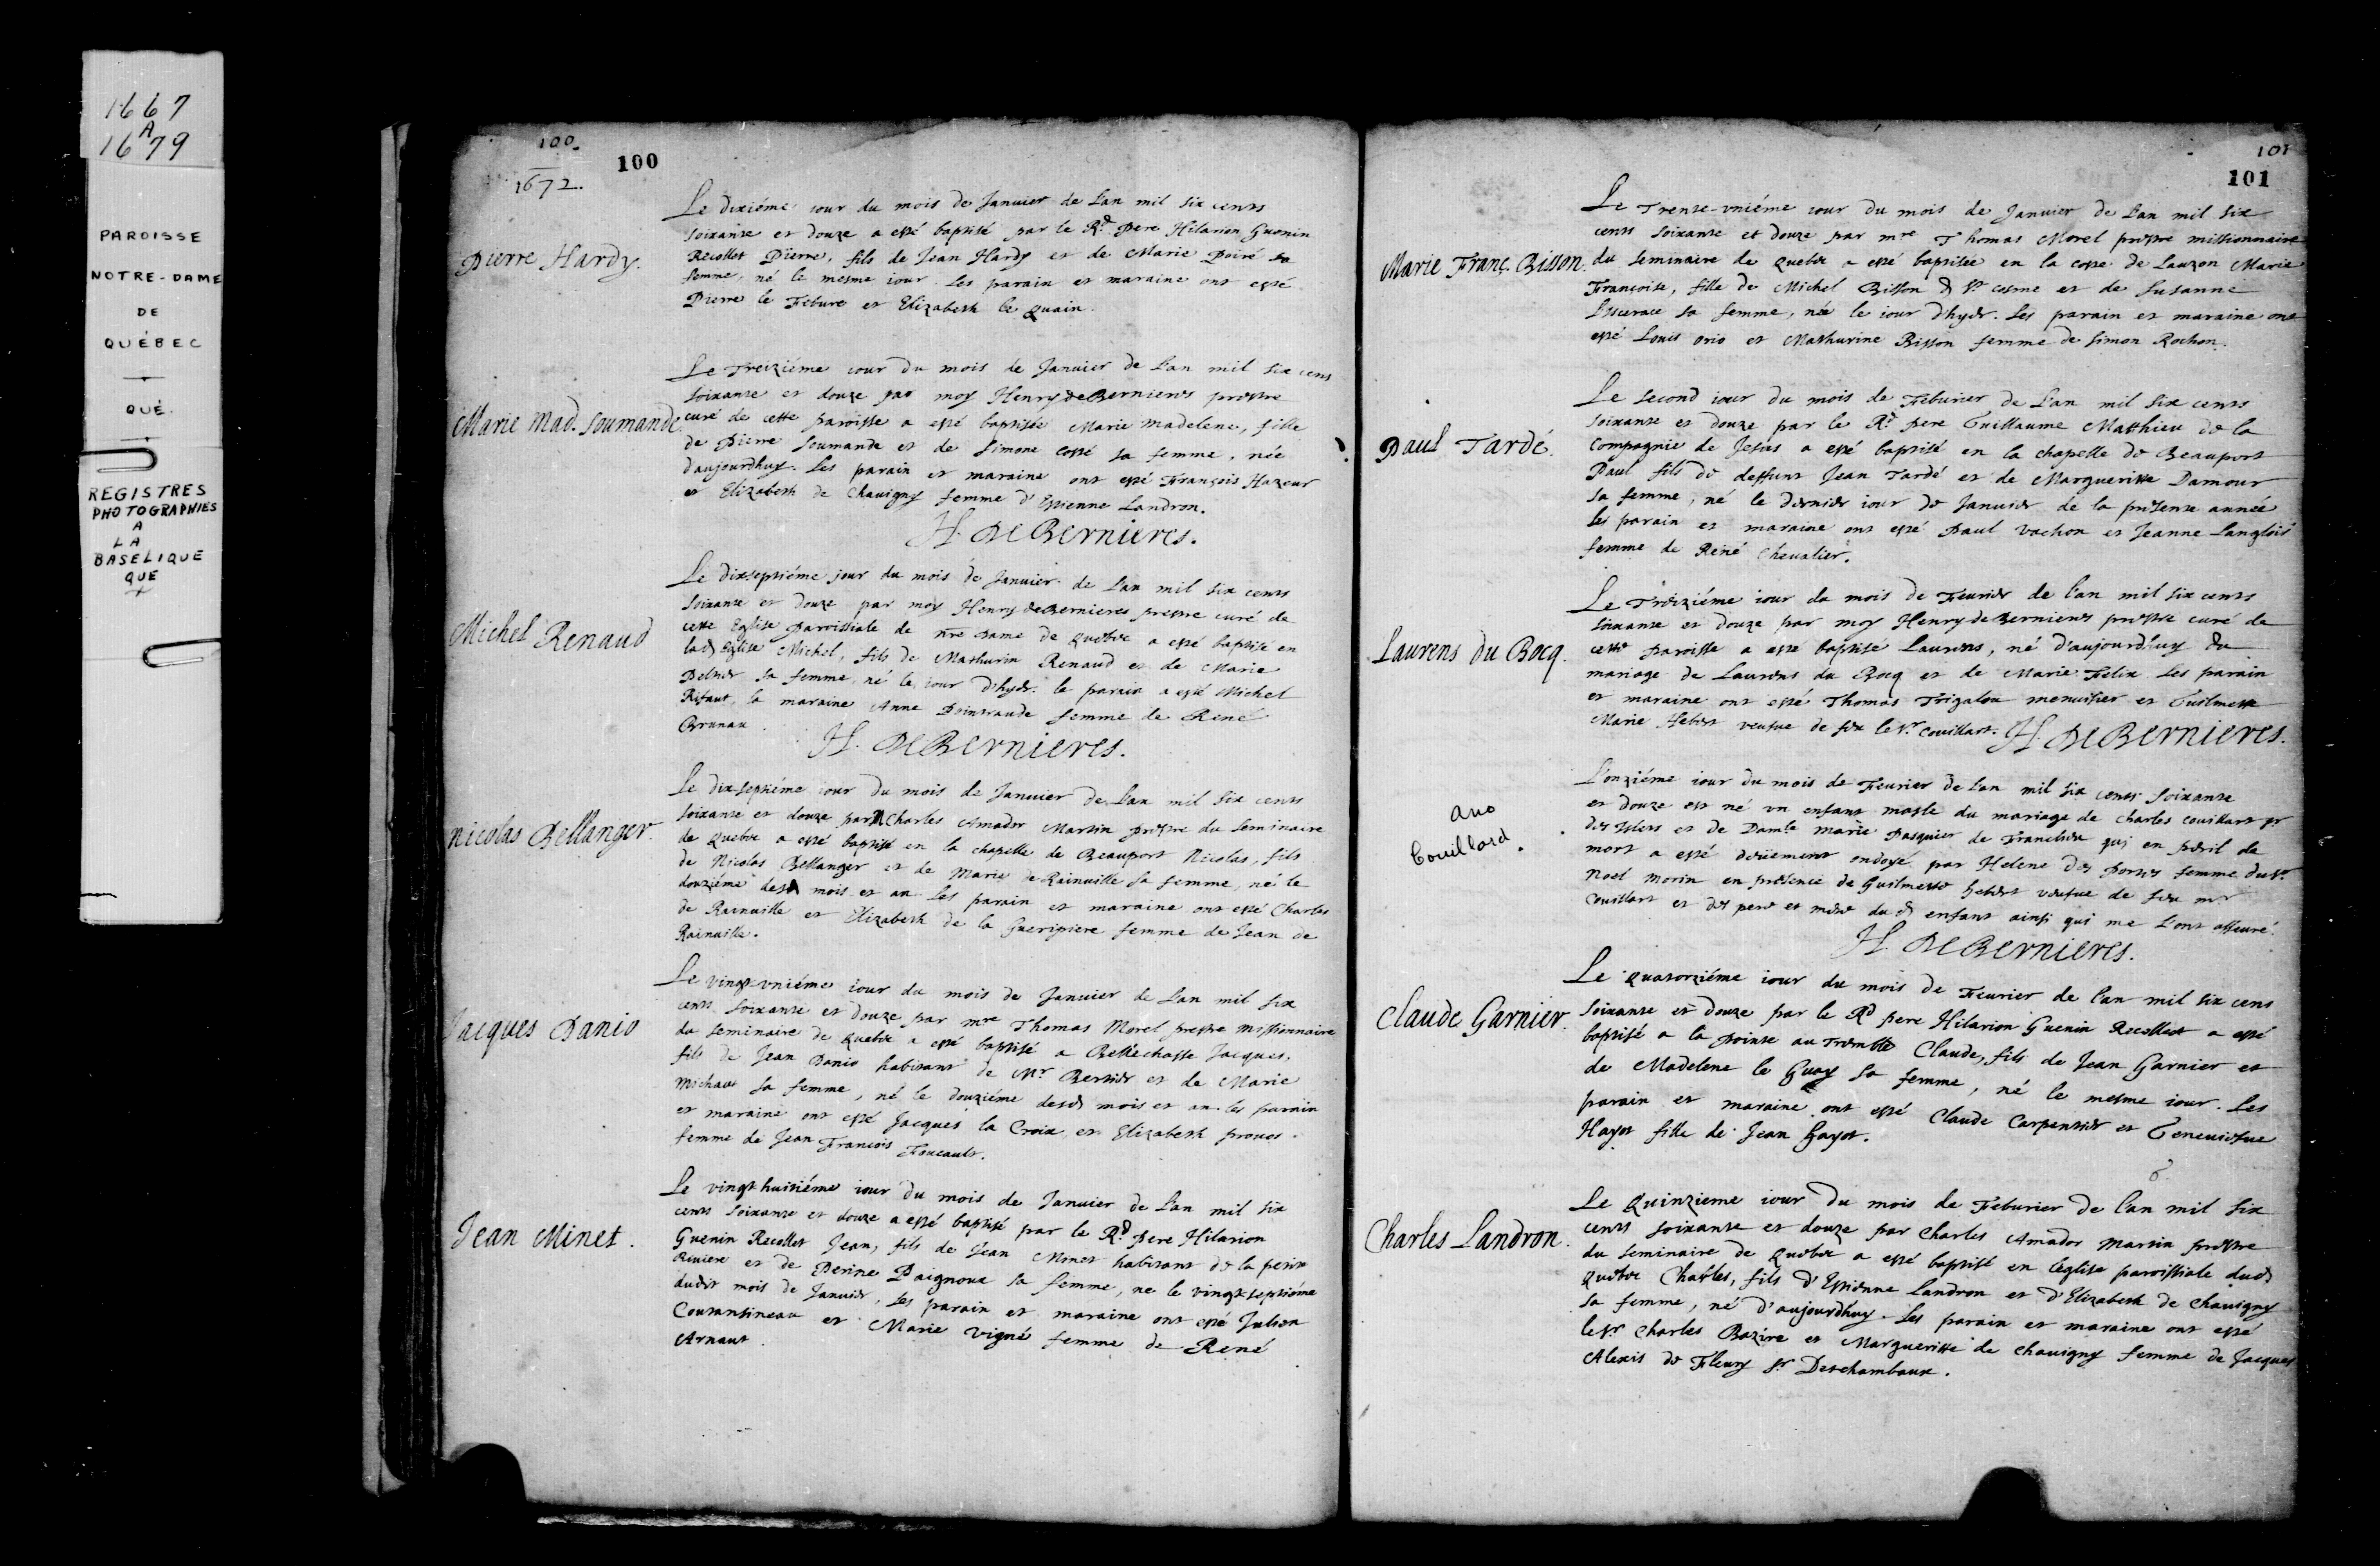 1667
A
1679
PAROISSE
NOTRE-DAME
DE
QUÉBEC
QUÉ.
REGISTRES
PHOTOGRAPHIES
A
LA
BASELIQUE
QUE
100.
1672.
100
Pierre Hardy.
Le dixiéme iour du mois de Januier de l'an mil six cents
soixante et douze a esté baptisé par le Rd. Pere Hilarion Guenin
Recollet Pierre, fils de Jean Hardy et de Marie Poiré sa
femme, né le mesme iour. Les parain et maraine ont esté
Pierre le Febure et Elizabeth le Quain.
Marie Mad. Soumande
Le Treiziéme iour du mois de Januier de l'an mil six cens
soixante et douze par moy Henry de Bernieres prestre
curé de cette paroisse a esté baptisée Marie Madelene, fille
de Pierre Soumande et de Simone Costé sa femme, née
d'aujourdhuy. Les parain et maraine ont esté François Hazeur
et Elizabeth de Chauigny femme d'Estienne Landron.
H. de Bernieres.
Michel Renaud
Le dixseptiéme jour du mois de Januier de l'an mil six cents
soixante et douze par moy Henry de Bernieres prestre curé de
cette Eglise Paroissiale de nre Dame de Quebec a esté baptisé en
lad Eglise Michel, fils de Mathurin Renaud et de Marie
Peltier sa femme, né le iour d'hyer. le parain a esté Michel
Rifaut, la maraine Anne Pointraude femme de René
Brunau.
H. de Bernieres.
Nicolas Bellanger.
Le dixseptiéme iour du mois de Januier de l'an mil six cents
soixante et douze par Charles Amador Martin prestre du seminaire
de Quebec a esté baptisé en la chapelle de Beauport Nicolas, fils
de Nicolas Bellanger et de Marie de Rainuille sa femme, né le
douziéme desd mois et an. Les parain et maraine ont esté Charles
de Rainuille et Elizabeth de la Gueripiere femme de Jean de
Rainuille.
Jacques Danio
Le vingt-vniéme iour du mois de Januier de l'an mil six
cents soixante et douze par mre Thomas Morel prestre missionnaire
du seminaire de Quebec a esté baptisé a Bellechasse Jacques,
fils de Jean Danio habitant de Mr Bertier et de Marie
Michaut sa femme, né le douziéme desd mois et an. les parain
et maraine ont esté Jacques la Croix et Elizabeth prouos
femme de Jean François Foucault.
Jean Minet.
Le vingthuitiéme iour du mois de Januier de l'an mil six
cents soixante et douze a esté baptisé par le Rd. Pere Hilarion
Guenin Recollet Jean, fils de Jean Minet habitant de la petite
Riuiere et de Perine sa femme, né le vingtseptiéme
dudit mois de Januier, les parain et maraine ont esté Julien
Courantineau et Marie Vigné femme de René
Arnaut.
101
101
Marie Franç. Bisson.
Le Trente-vniéme iour du mois de Januier de l'an mil six
cents soixante et douze par mre Thomas Morel prestre missionnaire
du seminaire de Quebec a esté baptisée en la coste de Lauzon Marie
Françoise, fille de Michel Bisson d St cosme et de Susanne
sa femme, née le iour d'hyer. Les parain et maraine ont
esté Louis orio et Mathurine Bisson femme de Simon Rochon.
Paul Tardé.
Le second iour du mois de Feburier de l'an mil six cents
soixante et douze par le Rd. pere Guillaume Matthieu de la
Compagnie de Jesus a esté baptisé en la chapelle de Beauport
Paul fils de deffunt Jean Tardé et de Margueritte Damour
sa femme, né le dernier iour de Januier de la presente année
les parain et maraine ont esté Paul Vachon et Jeanne Langlois
femme de René Cheualier.
Laurens du Bocq.
Le Treiziéme iour du mois de Feurier de l'an mil six cents
soixante et douze par moy Henry de Bernieres prestre curé de
cette paroisse a esté baptisé Laurens, né d'aujourdhuy du
mariage de Laurens du Bocq et de Marie Felix. Les parain
et maraine ont esté Thomas Trigalou menuisier et Guilmette
Marie Hebert veufue de feu le Sr. Couillart. H. de Bernieres.
Ano
Couillard.
L'onziéme iour du mois de Feurier de l'an mil six cents soixante
et douze est né vn enfant masle du mariage de Charles Couillart sr
des Islets et de Damle Marie Pasquier de Franclieu qui en peril de
mort a esté deüement ondoyé par Helene des portes femme du Sr.
Noel Morin en presence de Guilmette hebert veufue de feu mr
Couillart et des pere et mere dud enfant ainsi qui me l'ont asseuré.
H. de Bernieres.
Claude Garnier.
Le quatorziéme iour du mois de Feurier de l'an mil six cens
soixante et douze par le Rd pere Hilarion Guenin Recollect a esté
baptisé a la pointe au Tremble Claude, fils de Jean Garnier et
de Madelene le Guay sa femme, né le mesme iour. Les
parain et maraine ont esté Claude Carpentier et Geneuiefue
Hayot fille de Jean hayot.
Charles Landron.
Le Quinzieme iour du mois de Feburier de l'an mil six
cents soixante et douze par Charles Amador Martin prestre
du seminaire de Quebec a esté baptisé en l'eglise paroissiale dud
Quebec Charles, fils d'Estienne Landron et d'Elizabeth de Chauigny
sa femme, né d'aujourdhuy. Les parain et maraine ont esté
le Sr Charles Bazire et Margueritte de Chauigny femme de Jacques
Alexis de Fleury sr Deschambaux.